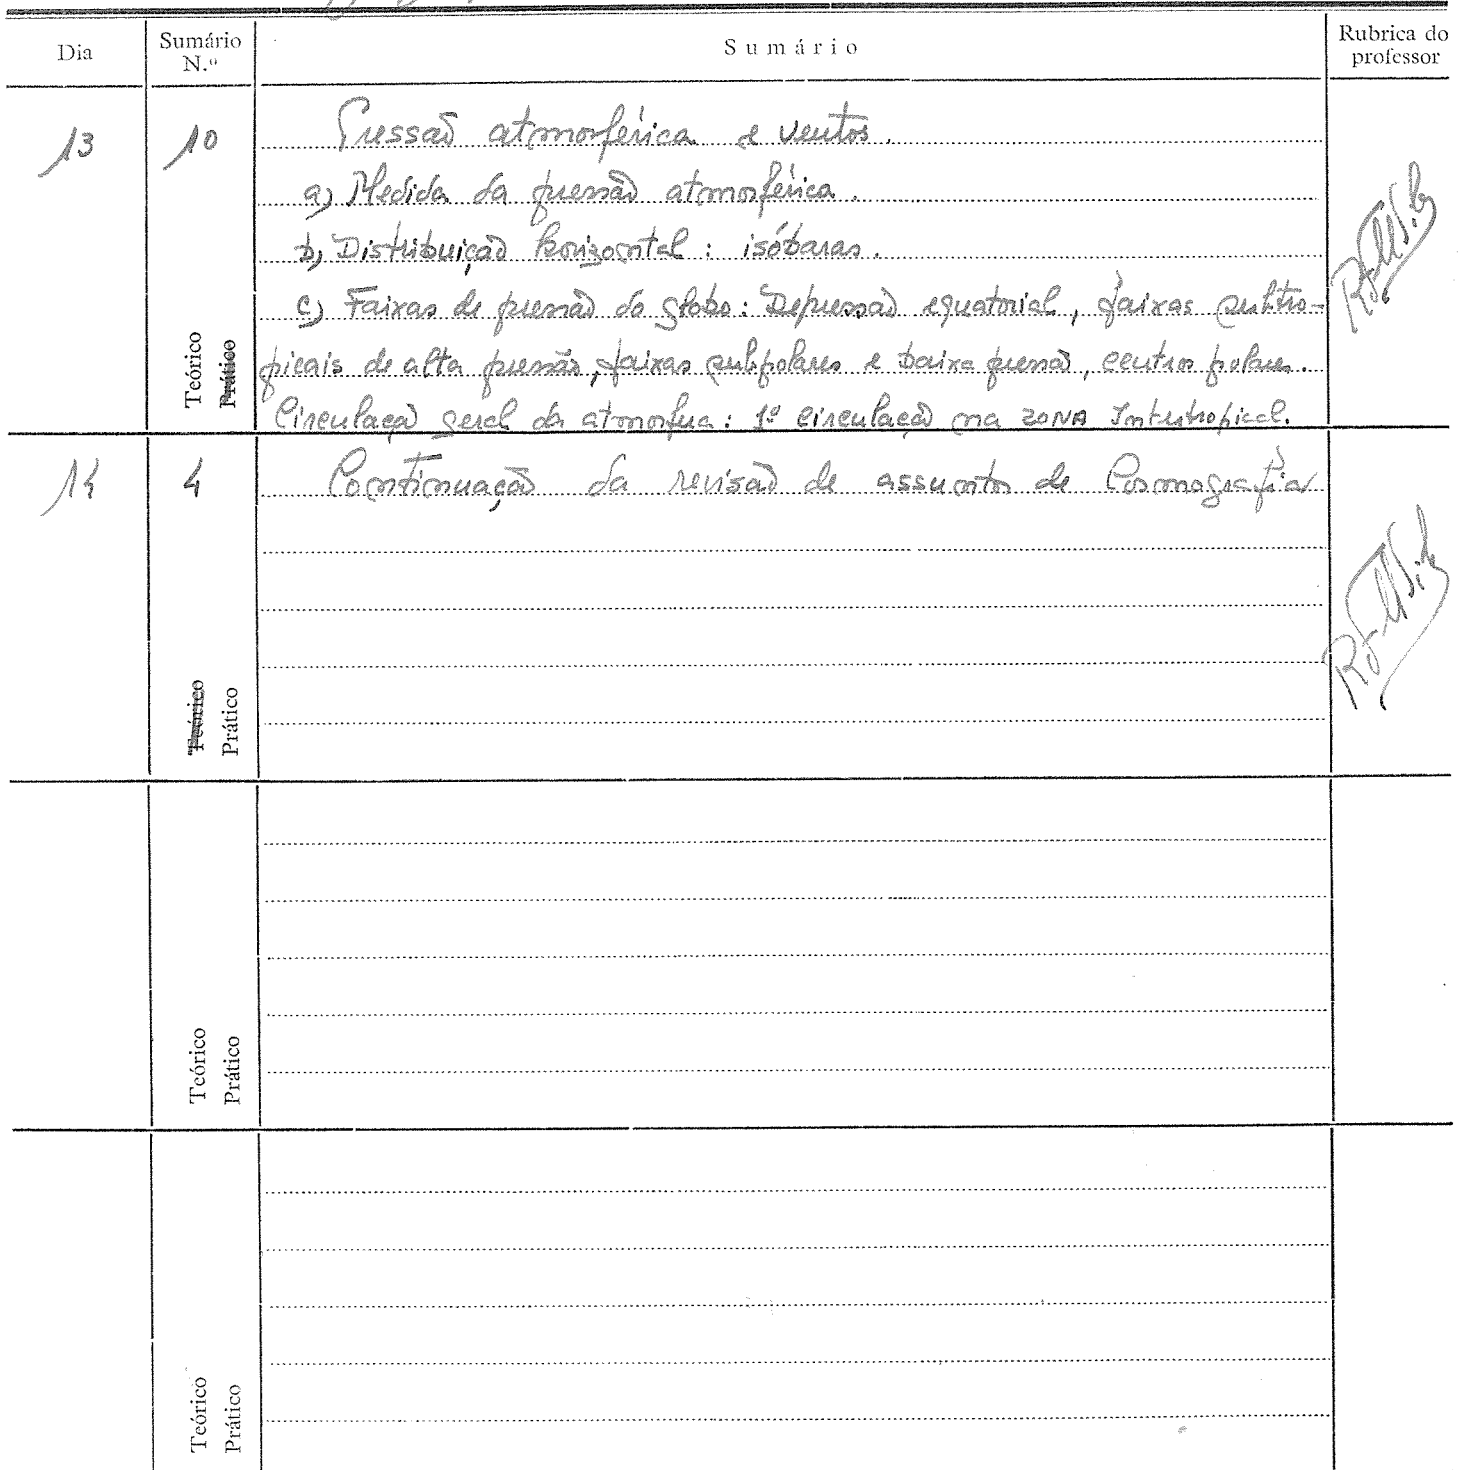 Dia
Sumário N.º
Sumário
Rubrica do professor
13
10
Teórico
Prático
Pressão atmosférica e ventos.
a) Medida da pressão atmosférica.
b) Distribuição horizontal: isóbaras.
c) Faixas de pressão do globo: Depressão equatorial, faixas subtro-
picais de alta pressão, faixas subpolares e baixa pressão, centros polares.
Circulação geral da atmosfera: 1º circulação na zona Intertropical.
14
4
Teórico
Prático
Continuação da revisão de assuntos de Cosmografia
Teórico
Prático
Teórico
Prático